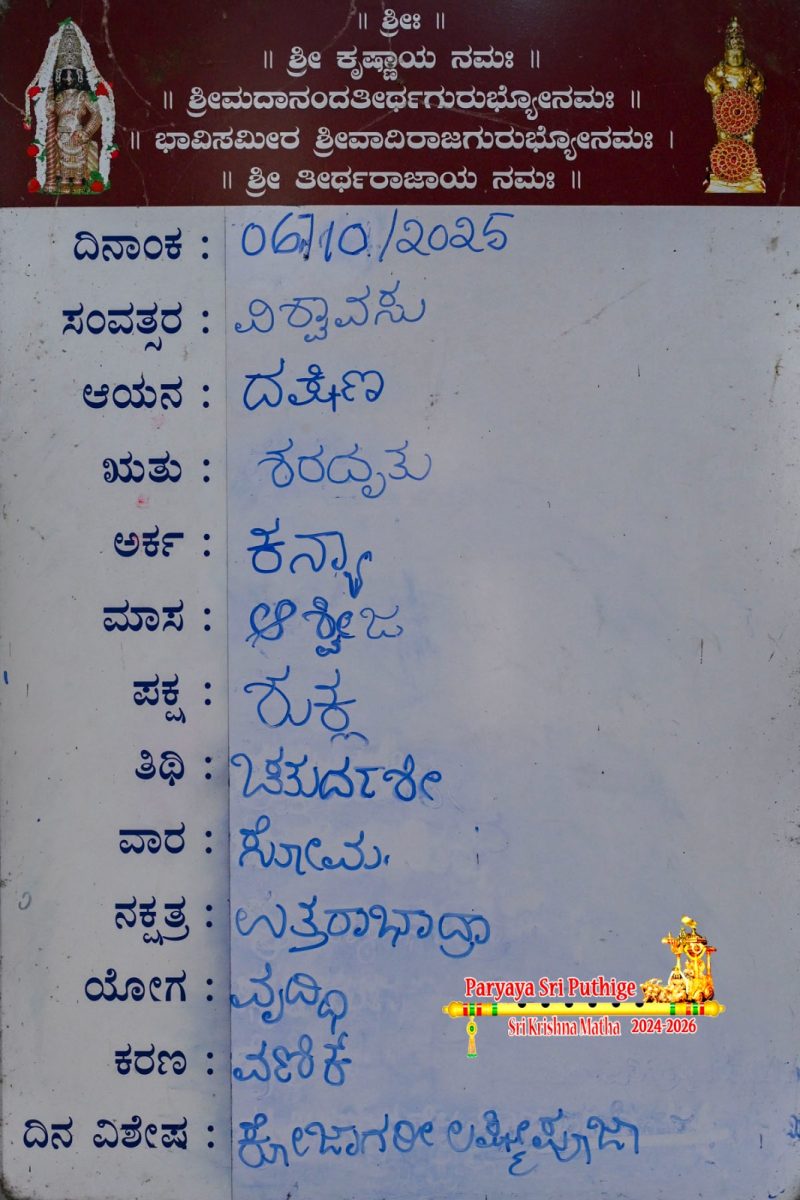 ॥ ಶ್ರೀಃ ॥
॥ ಶ್ರೀ ಕೃಷ್ಣಾಯ ನಮಃ ॥
॥ ಶ್ರೀಮದಾನಂದತೀರ್ಥಗುರುಭ್ಯೋನಮಃ ॥
॥ ಭಾವಿಸಮೀರ ಶ್ರೀವಾದಿರಾಜಗುರುಭ್ಯೋನಮಃ ।
॥ ಶ್ರೀ ತೀರ್ಥರಾಜಾಯ ನಮಃ ॥
ದಿನಾಂಕ : 06/10/2025
ಸಂವತ್ಸರ : ವಿಶ್ವಾವಸು
ಆಯನ : ದಕ್ಷಿಣ
ಋತು : ಶರದೃತು
ಅರ್ಕ : ಕನ್ಯಾ
ಮಾಸ : ಆಶ್ವೀಜ
ಪಕ್ಷ : ಶುಕ್ಲ
ತಿಥಿ : ಚತುರ್ದಶೀ
ವಾರ : ಸೋಮ
ನಕ್ಷತ್ರ : ಉತ್ತರಾಭಾದ್ರಾ
ಯೋಗ : ವೃದ್ಧಿ
ಕರಣ : ವಣಿಕ್
ದಿನ ವಿಶೇಷ : ಕೋಜಾಗರೀ ಲಕ್ಷ್ಮೀಪೂಜಾ
Paryaya Sri Puthige
Sri Krishna Matha 2024-2026